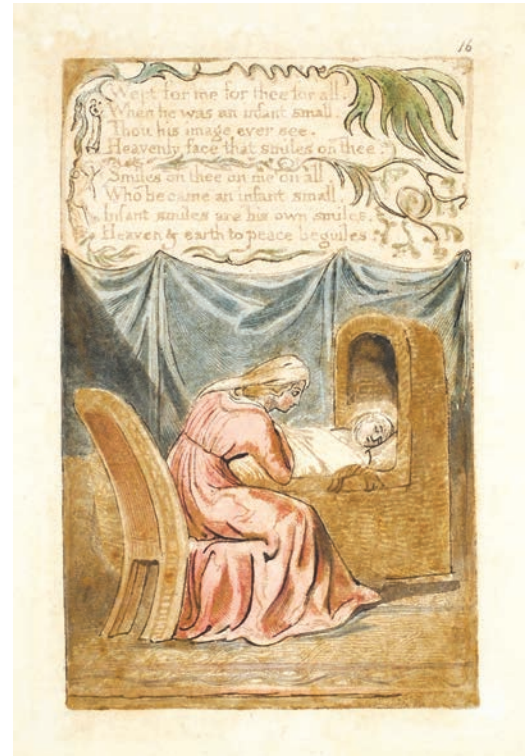 16
Wept for me for thee for all.
When he was an infant small.
Thou his image ever see.
Heavenly face that smiles on thee.
Smiles on thee on me on all
Who became an infant small.
Infant smiles are his own smiles.
Heaven & earth to peace beguiles.